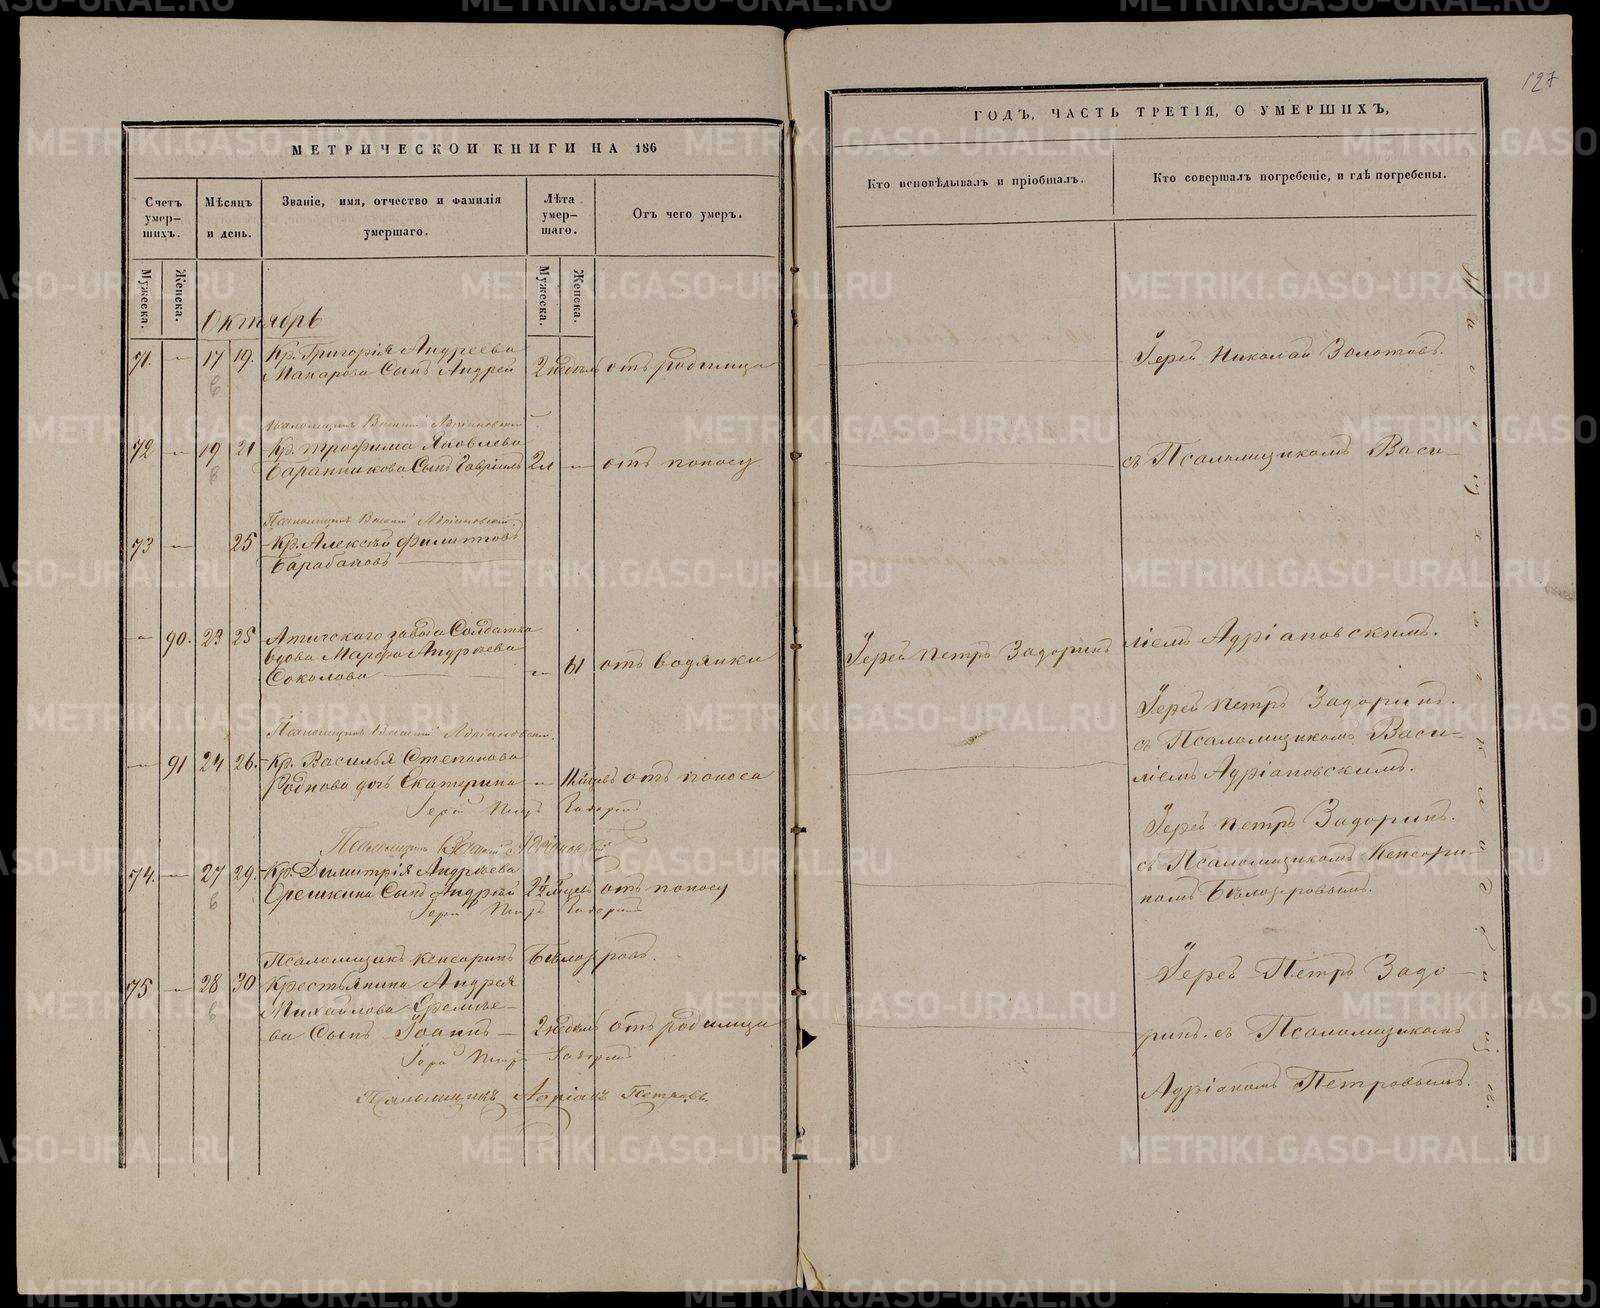 127
МЕТРИЧЕСКОЙ КНИГИ НА 186
ГОДЪ, ЧАСТЬ ТРЕТІЯ, О УМЕРШИХЪ,
Счетъ умер-шихъ.
Мѣсяцъ и день.
Званіе, имя, отчество и фамилія умершаго.
Лѣта умер-шаго.
Отъ чего умеръ.
Кто исповѣдывалъ и пріобщалъ.
Кто совершалъ погребеніе, и гдѣ погребены.
Мужеска.
Женска.
Мужеска.
Женска.
Октябрь
71. 17 19. Кр. Григорія Андреева
Макарова Сынъ Андрей 2 недѣль отъ родимца
Іерей Николай Золотовъ.
Псаломщикъ Василій Адріановскій
72 19 21 Кр. Трофима Яковлева
Баранникова Сынъ Гавріилъ 2 л отъ поносу
съ Псаломщикомъ Васи-
Псаломщикъ Василій Адріановскій.
73 25 Кр. Алексѣй Филипповъ
Барабановъ
90. 23 25 Атигскаго завода Солдатка
вдова Марфа Андреева
Соколова 61 отъ водянки
Іерей Петръ Задоринъ
ліемъ Адріановскимъ.
Псаломщикъ Василій Адріановскій.
91 24 26. Кр. Василья Степанова
Роднова дочь Екатерина 11 мѣсяцевъ отъ поноса
Іерей Петръ Задоринъ
Іерей Петръ Задоринъ.
съ Псаломщикомъ Васи-
ліемъ Адріановскимъ.
Псаломщикъ Василій Адріановскій
74. 27 29. Кр. Димитрія Андреева
Орешкина Сынъ Андрей 2½ отъ поносу
Іерей Петръ Задоринъ
Іерей Петръ Задоринъ.
съ Псаломщикомъ Кенсори-
номъ Бѣлозеровымъ.
Псаломщикъ Кенсоринъ Бѣлозеровъ.
75 28 30 Крестьянина Андрея
Михайлова Еремѣе-
ва Сынъ Іоаннъ 2 недѣль отъ родимца
Іерей Петръ Задоринъ
Псаломщикъ Адріанъ Петровъ.
Іерей Петръ Задо-
ринъ. съ Псаломщикомъ
Адріаномъ Петровымъ.
METRIKI.GASO-URAL.RU